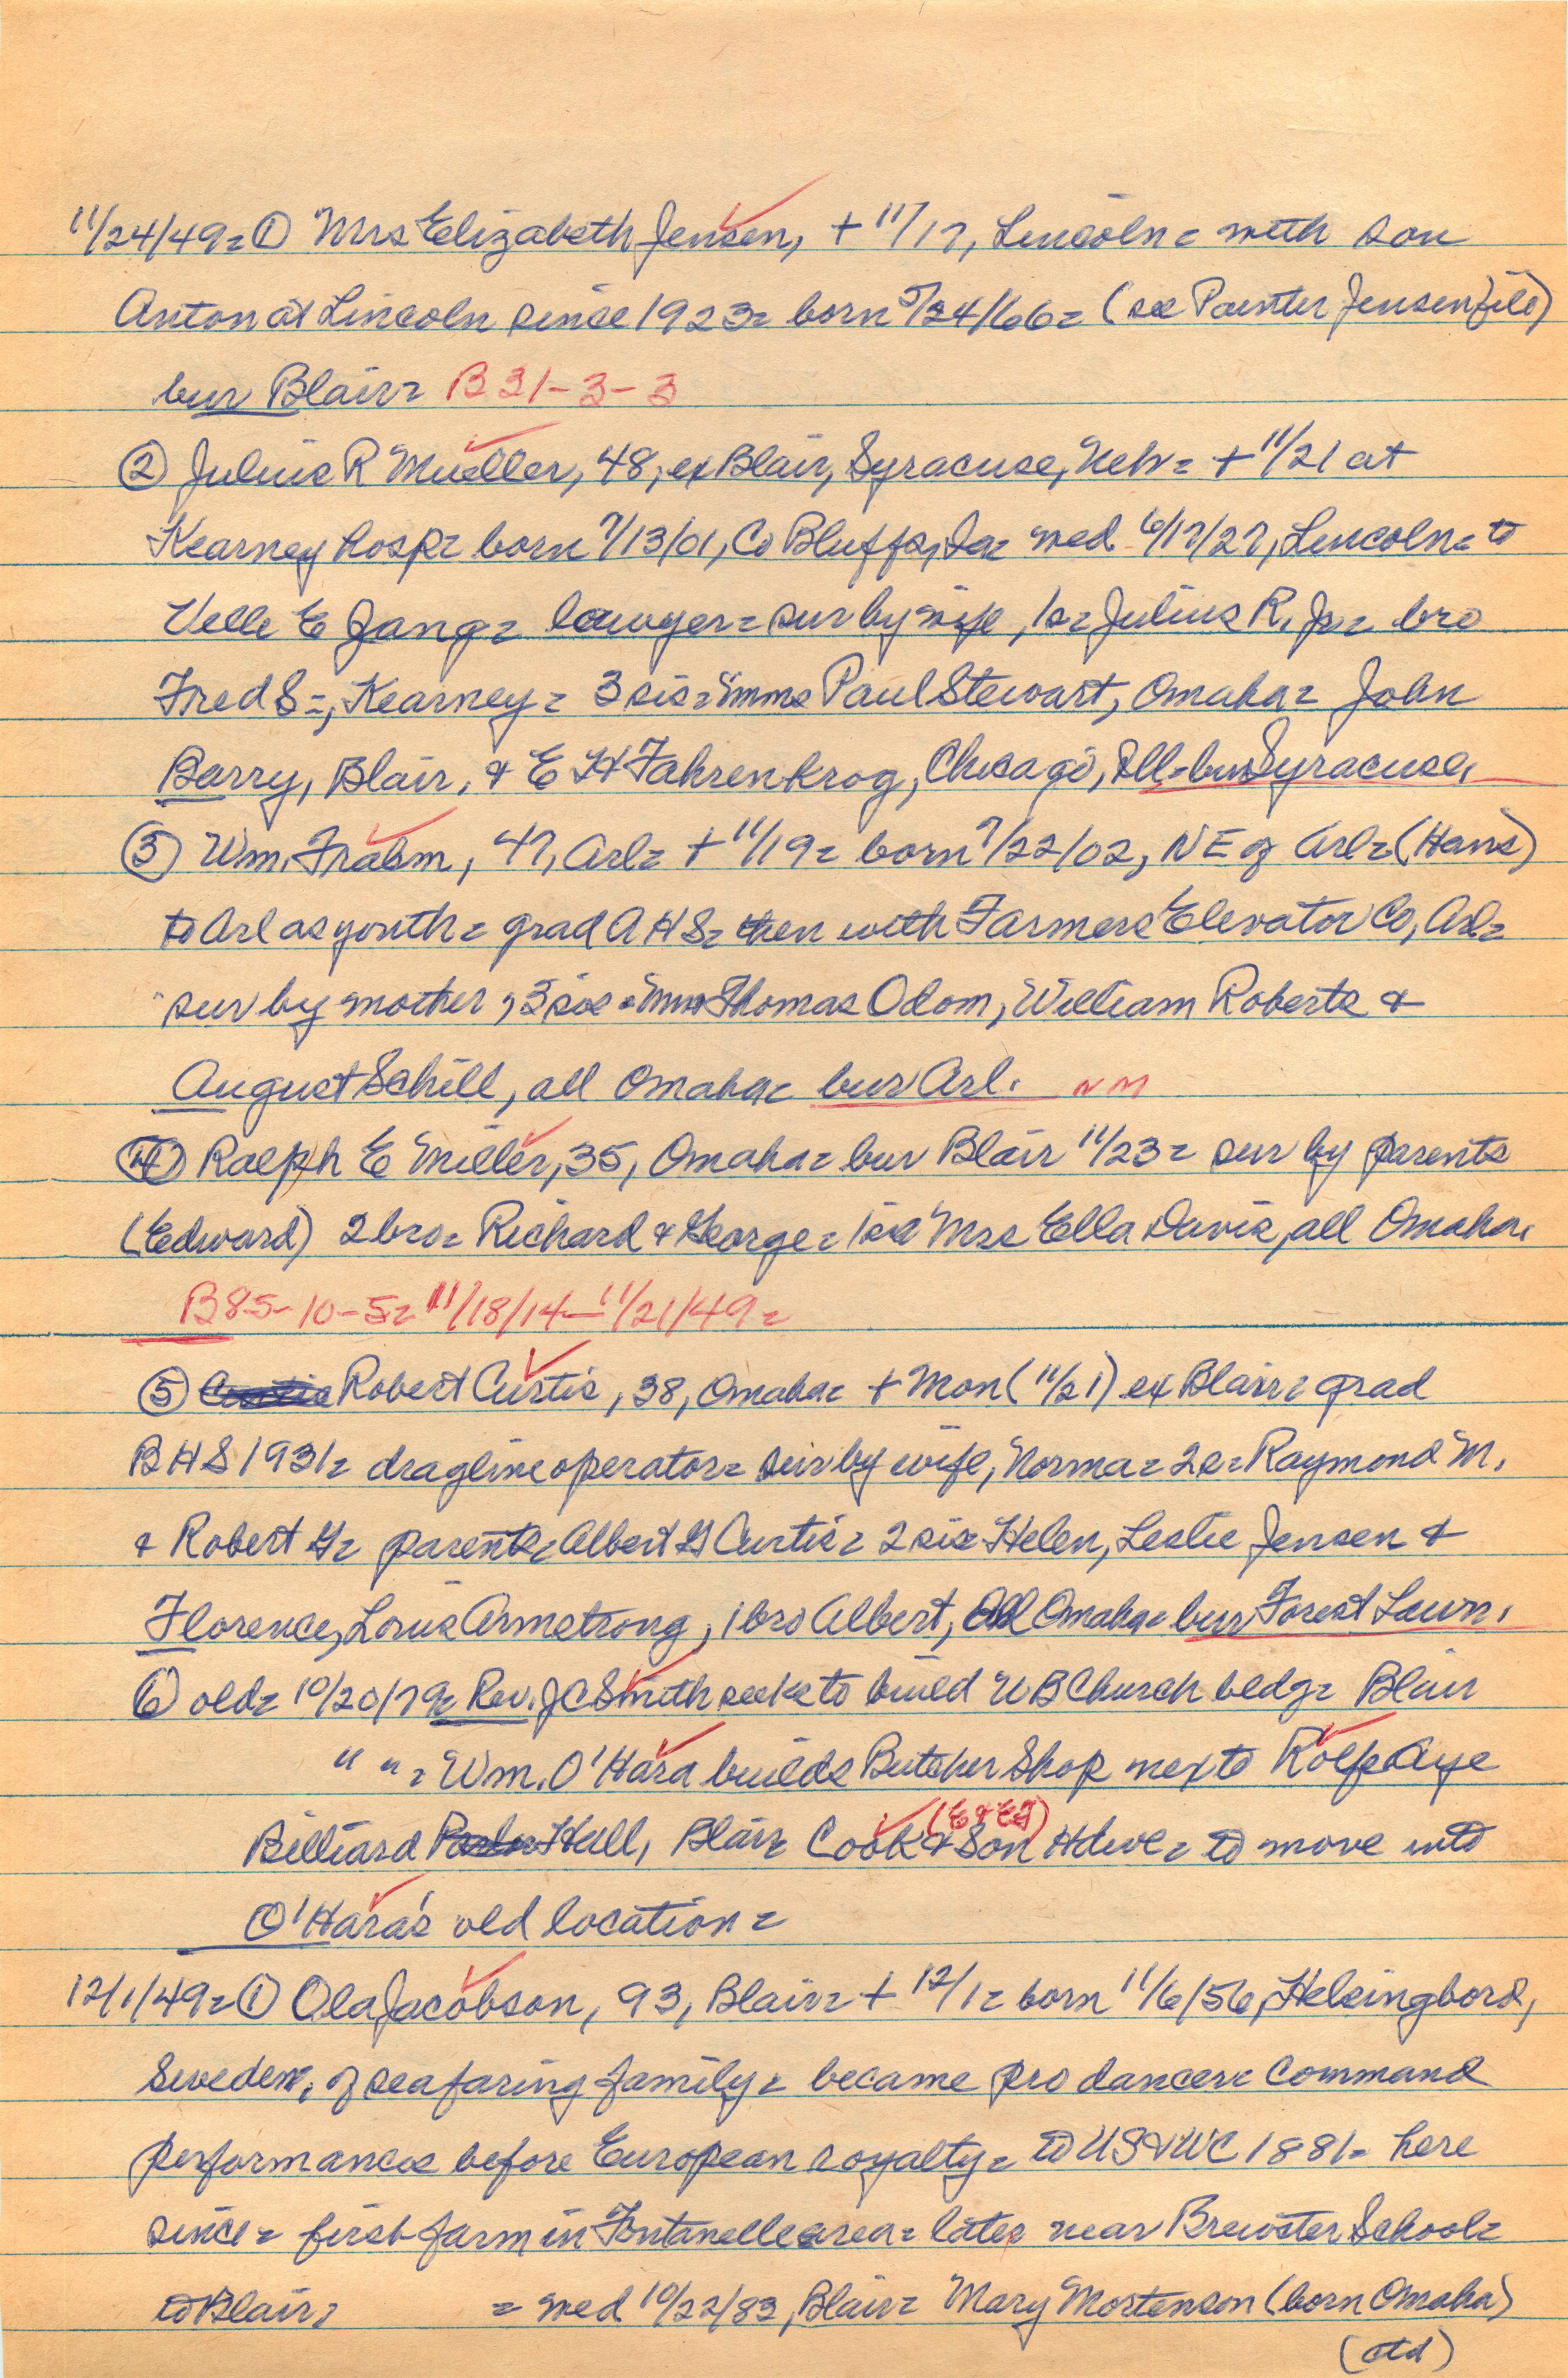 11/24/49= ① Mrs Elizabeth Jensen, + 11/17, Lincoln= with son
Anton at Lincoln since 1923= born 5/24/66= (see Painter Jensen file)
bur Blair= B31-3-3
② Julius R Mueller, 48, ex Blair, Syracuse, Neb= + 11/21 at
Kearney hosp= born 7/13/01, Co Bluffs, Ia= med 6/17/27, Lincoln= to
Velle E Jang= lawyer= sur by wife, 1s= Julius R. Jr= bro
Fred S=, Kearney= 3 sis= Mmes Paul Stewart, Omaha= John
Barry, Blair, & E H Fahrenkrog, Chicago, Ill= bur Syracuse.
③ Wm. Frahm, 47, Arl= + 11/19= born 7/22/02, NE of Arl= (Hans)
to Arl as youth= grad AHS= then with Farmers Elevator Co, Arl=
sur by mother, 3 sis= Mmes Thomas Odom, William Roberts &
August Schill, all Omaha= bur Arl. NM
④ Ralph E Miller, 35, Omaha= bur Blair 11/23= sur by parents
(Edward) 2 bro= Richard & George= 1 sis Mrs Ella Davis, all Omaha.
B85-10-5= 11/18/14-11/21/49=
⑤ Robert Curtis, 38, Omaha= + Mon (11/21) ex Blair= grad
BHS 1931= dragline operator= sur by wife, Norma= 2s= Raymond M.
& Robert G= parents= Albert G Curtis= 2 sis= Helen, Leslie Jensen &
Florence, Louis Armstrong, 1 bro Albert, all Omaha= bur Forest Lawn.
⑥ old= 10/20/79= Rev. J C Smith seeks to build UB Church bldg= Blair
" " = Wm. O'Hara builds Butcher Shop next to Rolfe Aye
Billiard Hall, Blair= Cook & Son (E & EG) Hdwe= to move into
O'Hara's old location=
12/1/49= ① Ola Jacobson, 93, Blair= + 12/1= born 11/6/56, Helsingbord,
Sweden, of seafaring family= became pro dancer= command
performances before European royalty= to US & WC 1881= here
since= first farm in Fontanelle area= later near Brewster School=
to Blair= = med 10/22/83, Blair= Mary Mortenson (born Omaha)
(ctd)